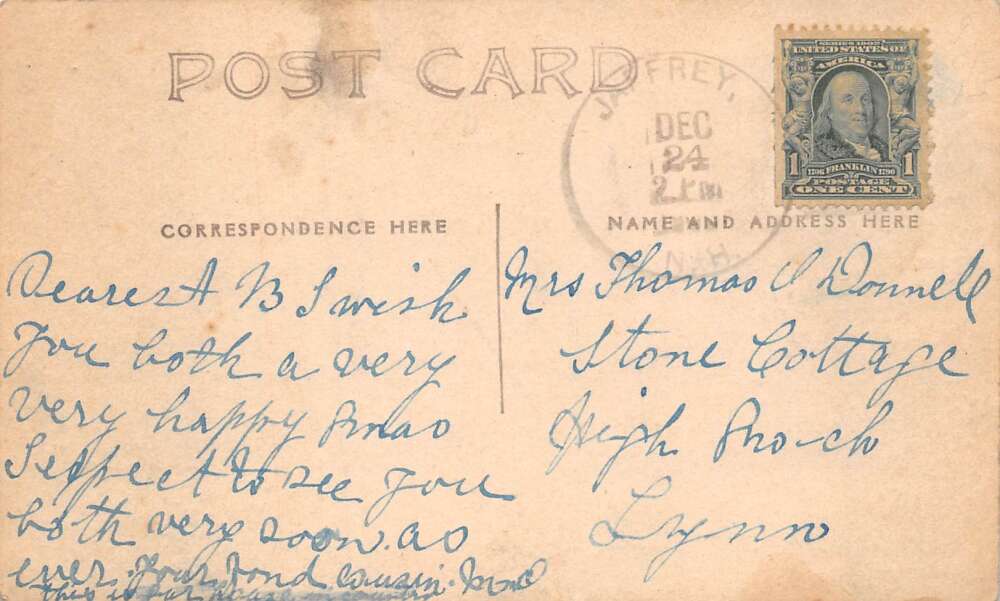 POST CARD
JAFFREY,
DEC
24
N.H.
SERIES 1902
UNITED STATES OF
AMERICA
1 1706 FRANKLIN 1790 1
POSTAGE
ONE CENT
CORRESPONDENCE HERE
NAME AND ADDRESS HERE
Dearest B I wish
You both a very
very happy Xmas
I expect to see You
both very soon. as
ever. Your fond cousin.
This is our house in country
Mrs Thomas O Donnell
Stone Cottage
High
Lynn